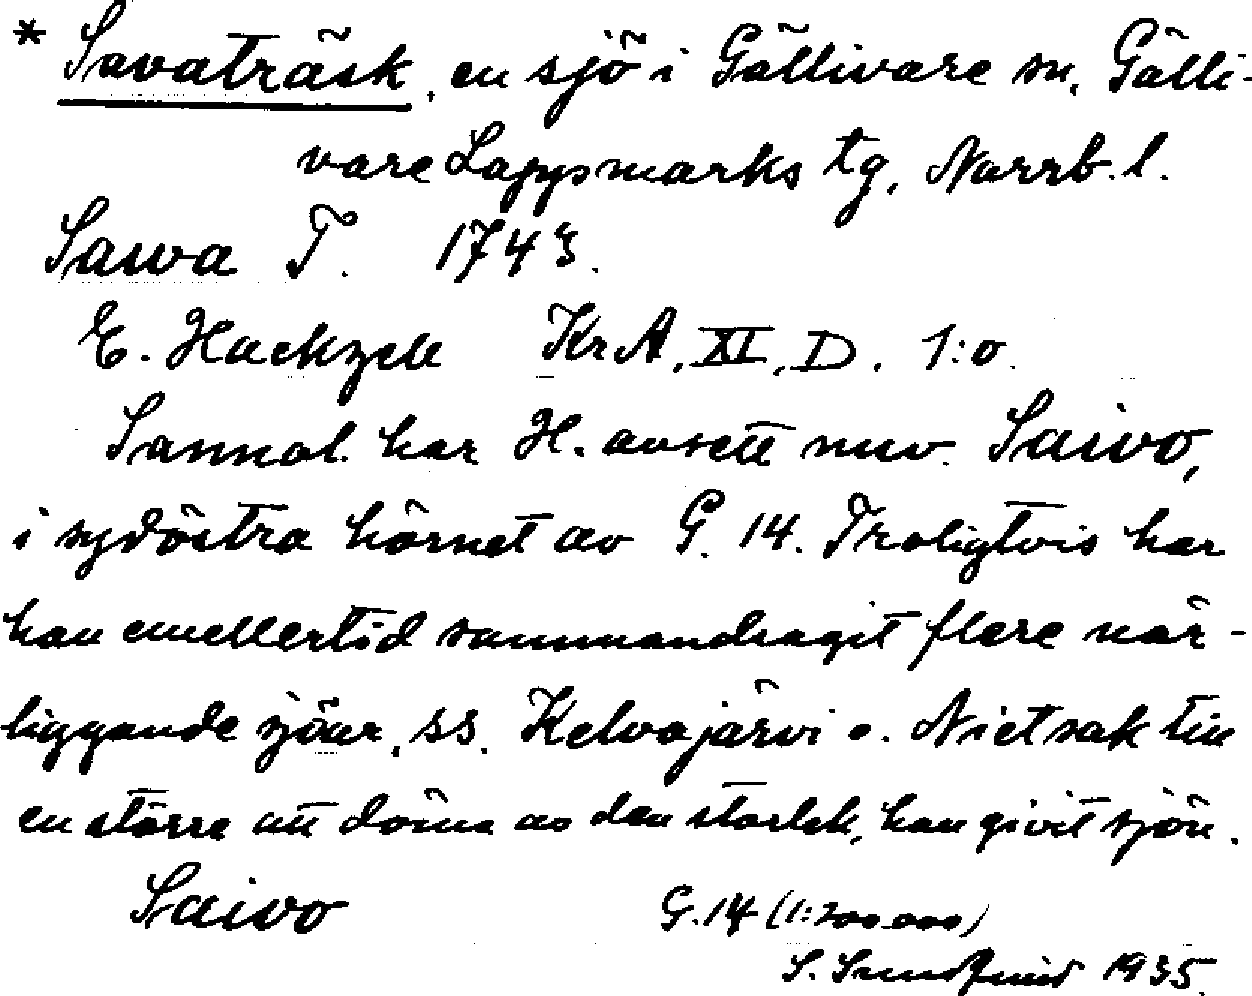 * Savaträsk, en sjö i Gällivare sn, Gälli-
vare Lappmarks tg, Norrb. l.
Sawa T. 1743.
E. Hackzell KrA, XI, D. 1:o.
Sannol. har H. avsett nuv. Saivo,
i sydöstra hörnet av G. 14. Troligtvis har
han emellertid sammandragit flere när-
liggande sjöar, ss. Kelvajärvi o. Nietsak till
en större att döma av den storlek, han givit sjön.
Saivo G. 14 (1:200.000)
S. 1935.